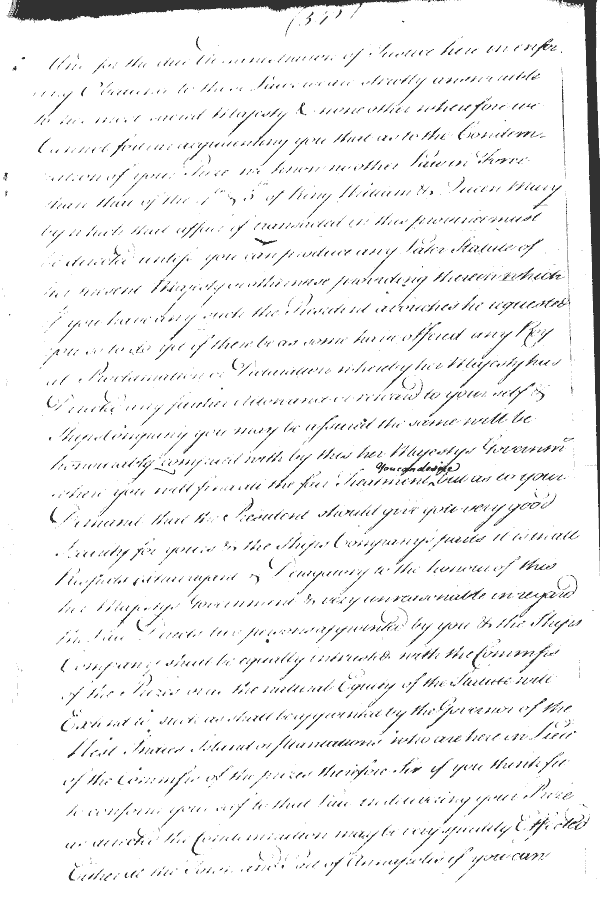 (377)
Also for the due Administration of Justice here in enfor
ing Obedience to these Laws we are strictly answerable
to her most sacred Majesty & none other wherefore we
Cannot forbear acquainting you that as to the Condem
nation of your Prize we know no other Law in Force
than that of the 4th & 5th of King William & Queen Mary
by which that affair if transacted in this province must
be directed unless you can produce any Later Statute of
her present Majesty or otherwise providing therein which
if you have any such the President avouches he requested
you so to do yet if there be as some have offered any Roy
al Proclamation or Declaration whereby her Majesty has
Directed any further Allowance or reward to your self &
Ships Company you may be assured the same will be
honourably complied with by this her Majestys Governmt
where you will find all the fair Treatment you can desire but as to your
Demand that the President should give you very good
Security for yours & the Ships Companys parts it is in all
Respects extravagant & Derogatory to the honour of this
her Majestys Government & very unreasonable in regard
the Law Directs two persons appointed by you & the Ships
Company shall be equally intrusted with the Commrs
of the Prizes or as the natural Equity of the Statute will
Extend to such as shall be appointed by the Governor of the
West Indies Island or plantations who are here in Lieu
of the Commrs of the prizes therefore Sir if you think fit
to conform your self to that Law in delivering your Prize
as directed the Condemnation may be very speedily Effected
Either at the Town and Port of Annapolis if you can